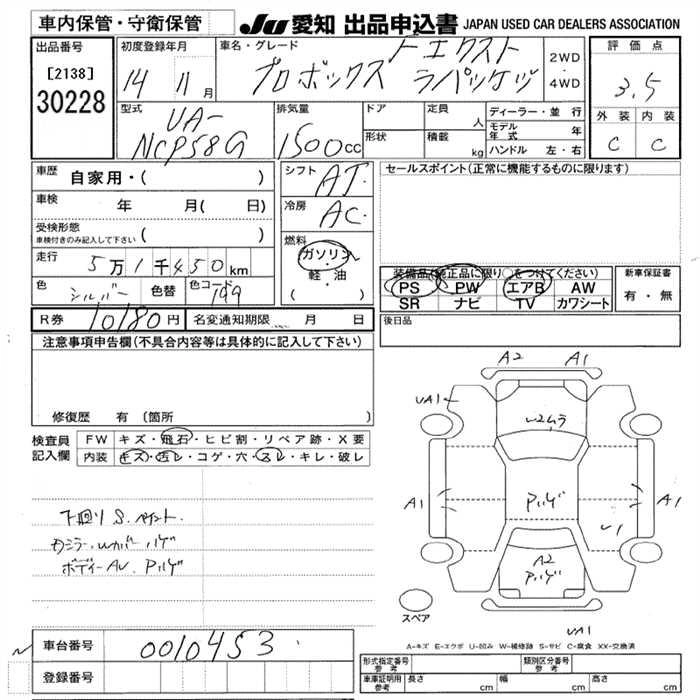 車内保管・守衛保管
JU 愛知 出品申込書 JAPAN USED CAR DEALERS ASSOCIATION
出品番号
[2138]
30228
初度登録年月
14 11月
車名・グレード
プロボックス
トエクスト
ラパッケッジ
2WD
・
4WD
評価点
3.5
外装 内装
C C
型式
UA-
NCP58G
排気量
1500cc
ドア
形状
定員 人
積載 kg
ディーラー・並行
モデル年式 年
ハンドル 左・右
車歴
自家用・( )
車検 年 月( 日)
受検形態
車検付きのみ記入して下さい ( )
走行 5万1千450km
色 シルバー 色替 色コード 199
シフト AT
冷房 AC
燃料
ガソリン
・
軽・油
( )
セールスポイント(正常に機能するものに限ります)
装備品(純正品に限り○をつけてください)
PS PW エアB AW
SR ナビ TV カワシート
新車保証書
有・無
R券 10180円 名変通知期限 月 日
後日品
注意事項申告欄(不具合内容等は具体的に記入して下さい)
修復歴 有 (箇所 )
検査員
記入欄
FW キズ・飛石・ヒビ割・リペア跡・X要
内装 キズ・汚レ・コゲ・穴・スレ・キレ・破レ
下廻り S. ペイント.
カミラーuカバーハゲ
ボディーAU. Pハゲ
A2 A1
UA1
u2ムラ
A1 Pハゲ A1
u1
A2
Pハゲ
スペア
UA1
A-キズ E-エクボ U-凹み W-補修跡 S-サビ C-腐食 XX-交換済
車台番号 0010453
登録番号
形式指定番号
参考
類別区分番号
参考
車庫証明用
参考
長さ cm 幅 cm 高さ cm